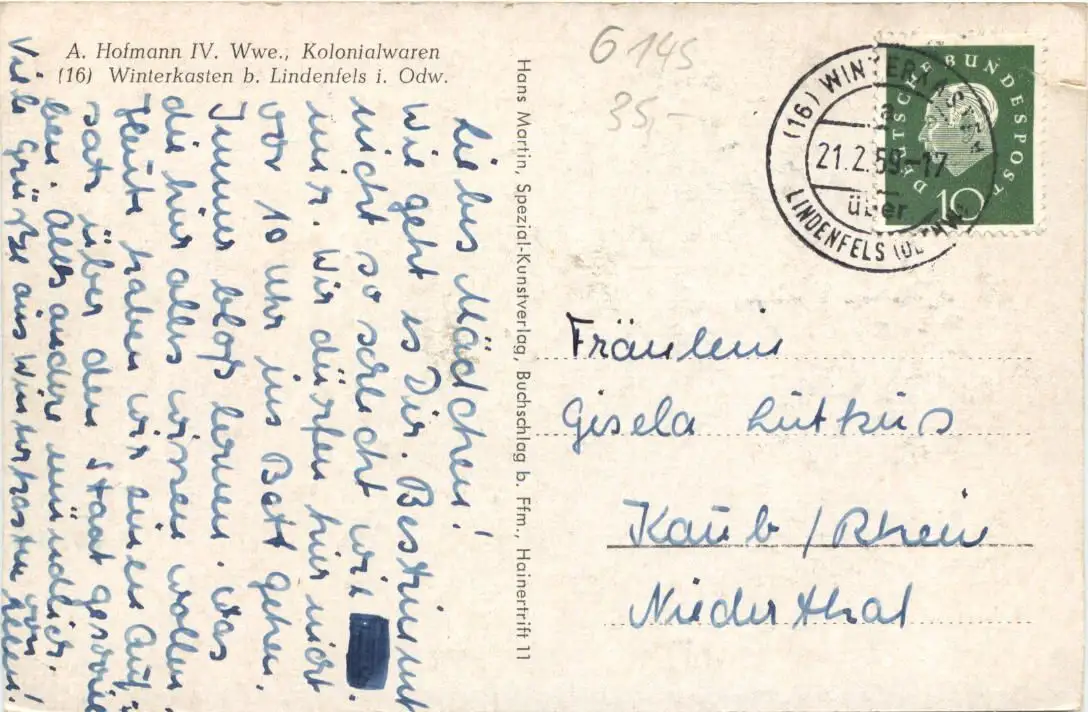 A. Hofmann IV. Wwe., Kolonialwaren
(16) Winterkasten b. Lindenfels i. Odw.
Liebes Mädchen!
Wie geht es Dir. Bestimmt
nicht so schlecht wie
mir. Wir dürfen hier nicht
vor 10 Uhr ins Bett gehen.
Immer bloß lernen. Was
die hier alles wissen wollen.
Heute haben wir einen Auf-
satz über den Staat geschrie
ben. Alles andere mündlich.
Viele Grüße aus Winterkasten von
Hans Martin, Spezial-Kunstverlag, Buchschlag b. Ffm., Hainertrift 11
6145
35,-
(16) WINTERKASTEN
a
21.2.59-17
über
LINDENFELS (ODENW)
DEUTSCHE BUNDESPOST
10
Fräulein
Gisela Lütkus
Kaub/Rhein
Niederthal